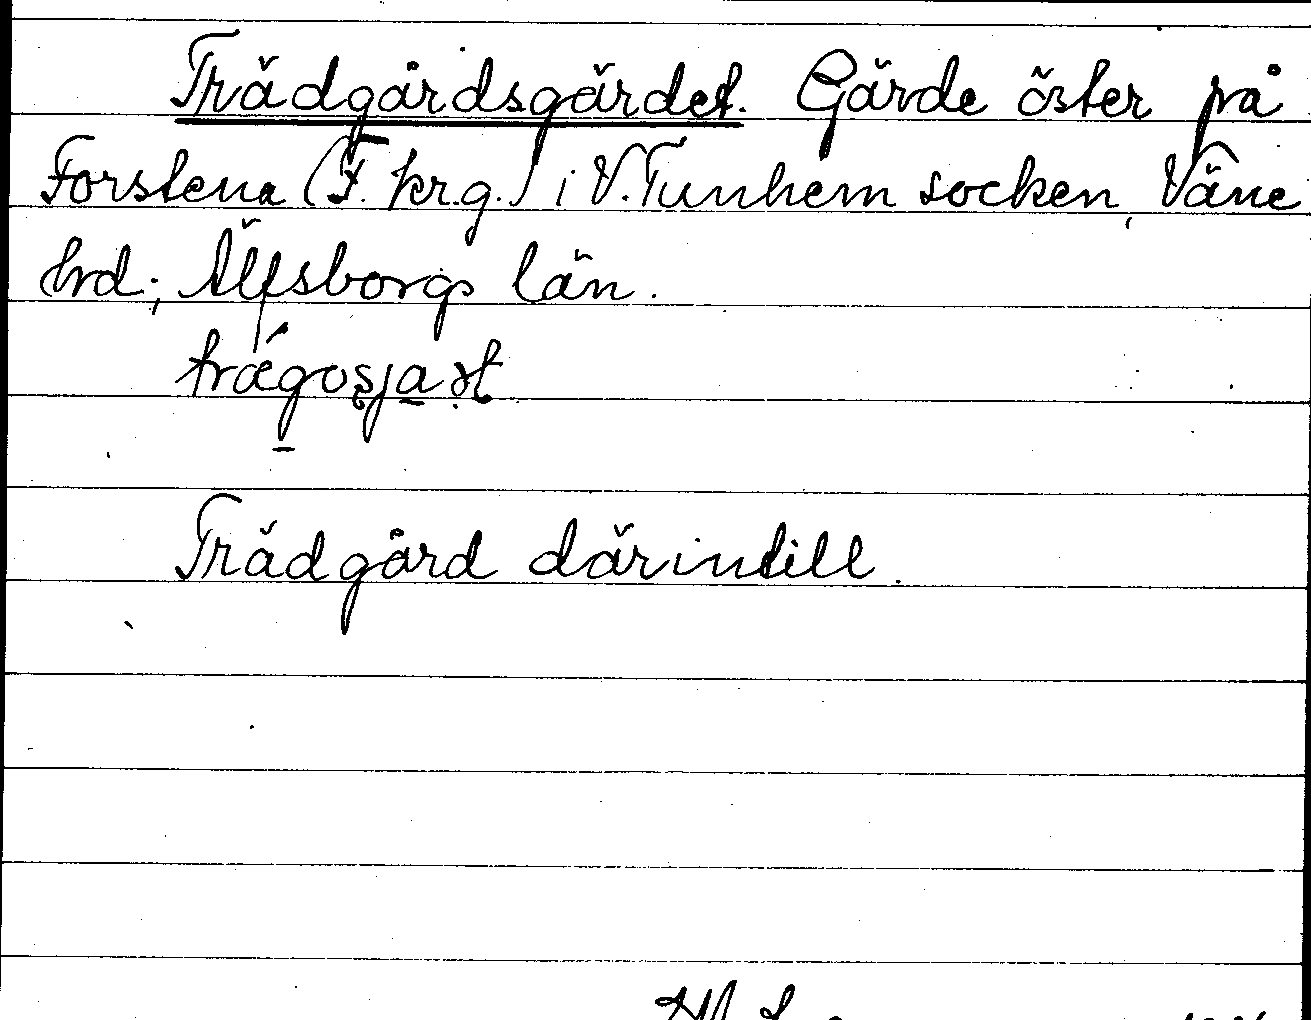 Trädgårdsgärdet. Gärde öster på
Forstena (F. krg.) i V. Tunhem socken, Väne
hd; Älfsborgs län.
Trädgård därintill.